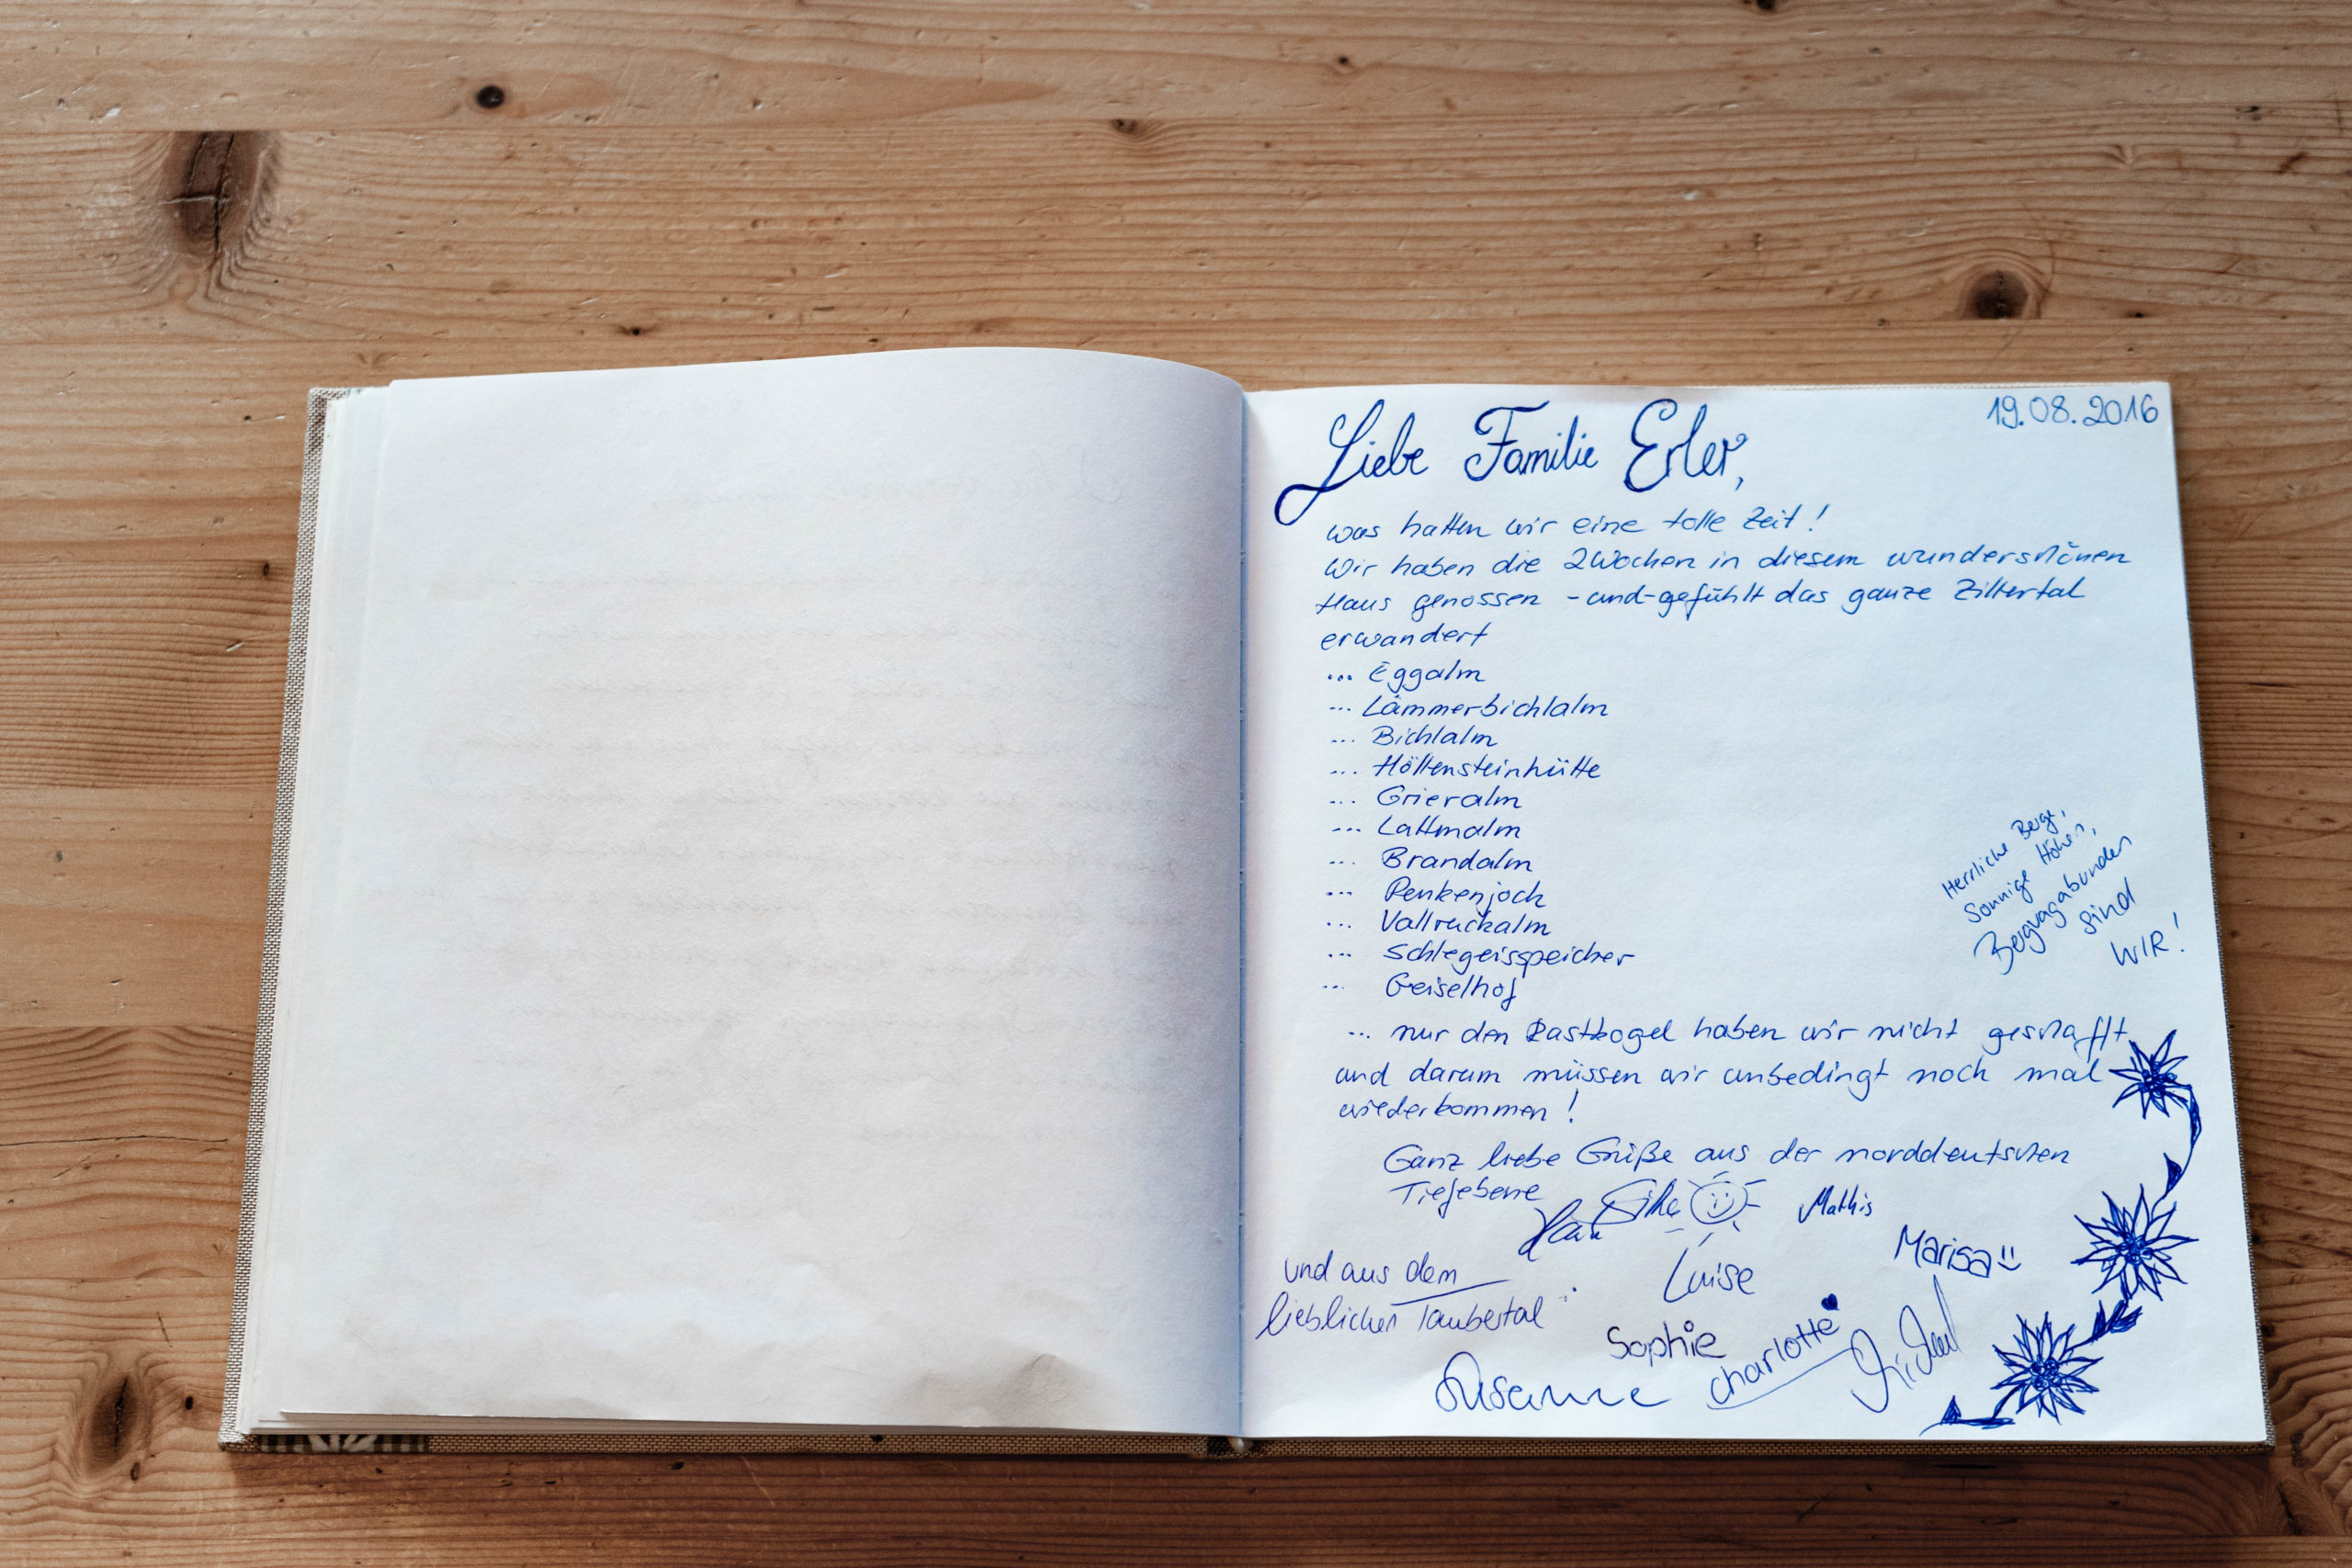 19.08.2016
Liebe Familie Erler,
was hatten wir eine tolle Zeit!
Wir haben die 2 Wochen in diesem wunderschönen
Haus genossen - und - gefühlt das ganze Zillertal
erwandert
... Eggalm
... Lämmerbichlalm
... Bichlalm
... Höllensteinhütte
... Grieralm
... Lattmalm
... Brandalm
... Penkenjoch
... Vallruckalm
... Schlegeisspeicher
... Geiselhof
Herrliche Berge,
Sonnige Höhen,
Bergvagabunden
sind
WIR!
... nur den Rastkogel haben wir nicht geschafft
und darum müssen wir unbedingt noch mal
wiederkommen!
Ganz liebe Grüße aus der norddeutschen
Tiefebene
Silke Mathis
Marisa
und aus dem
Luise
lieblichen Taubertal
Sophie
Charlotte
Susanne